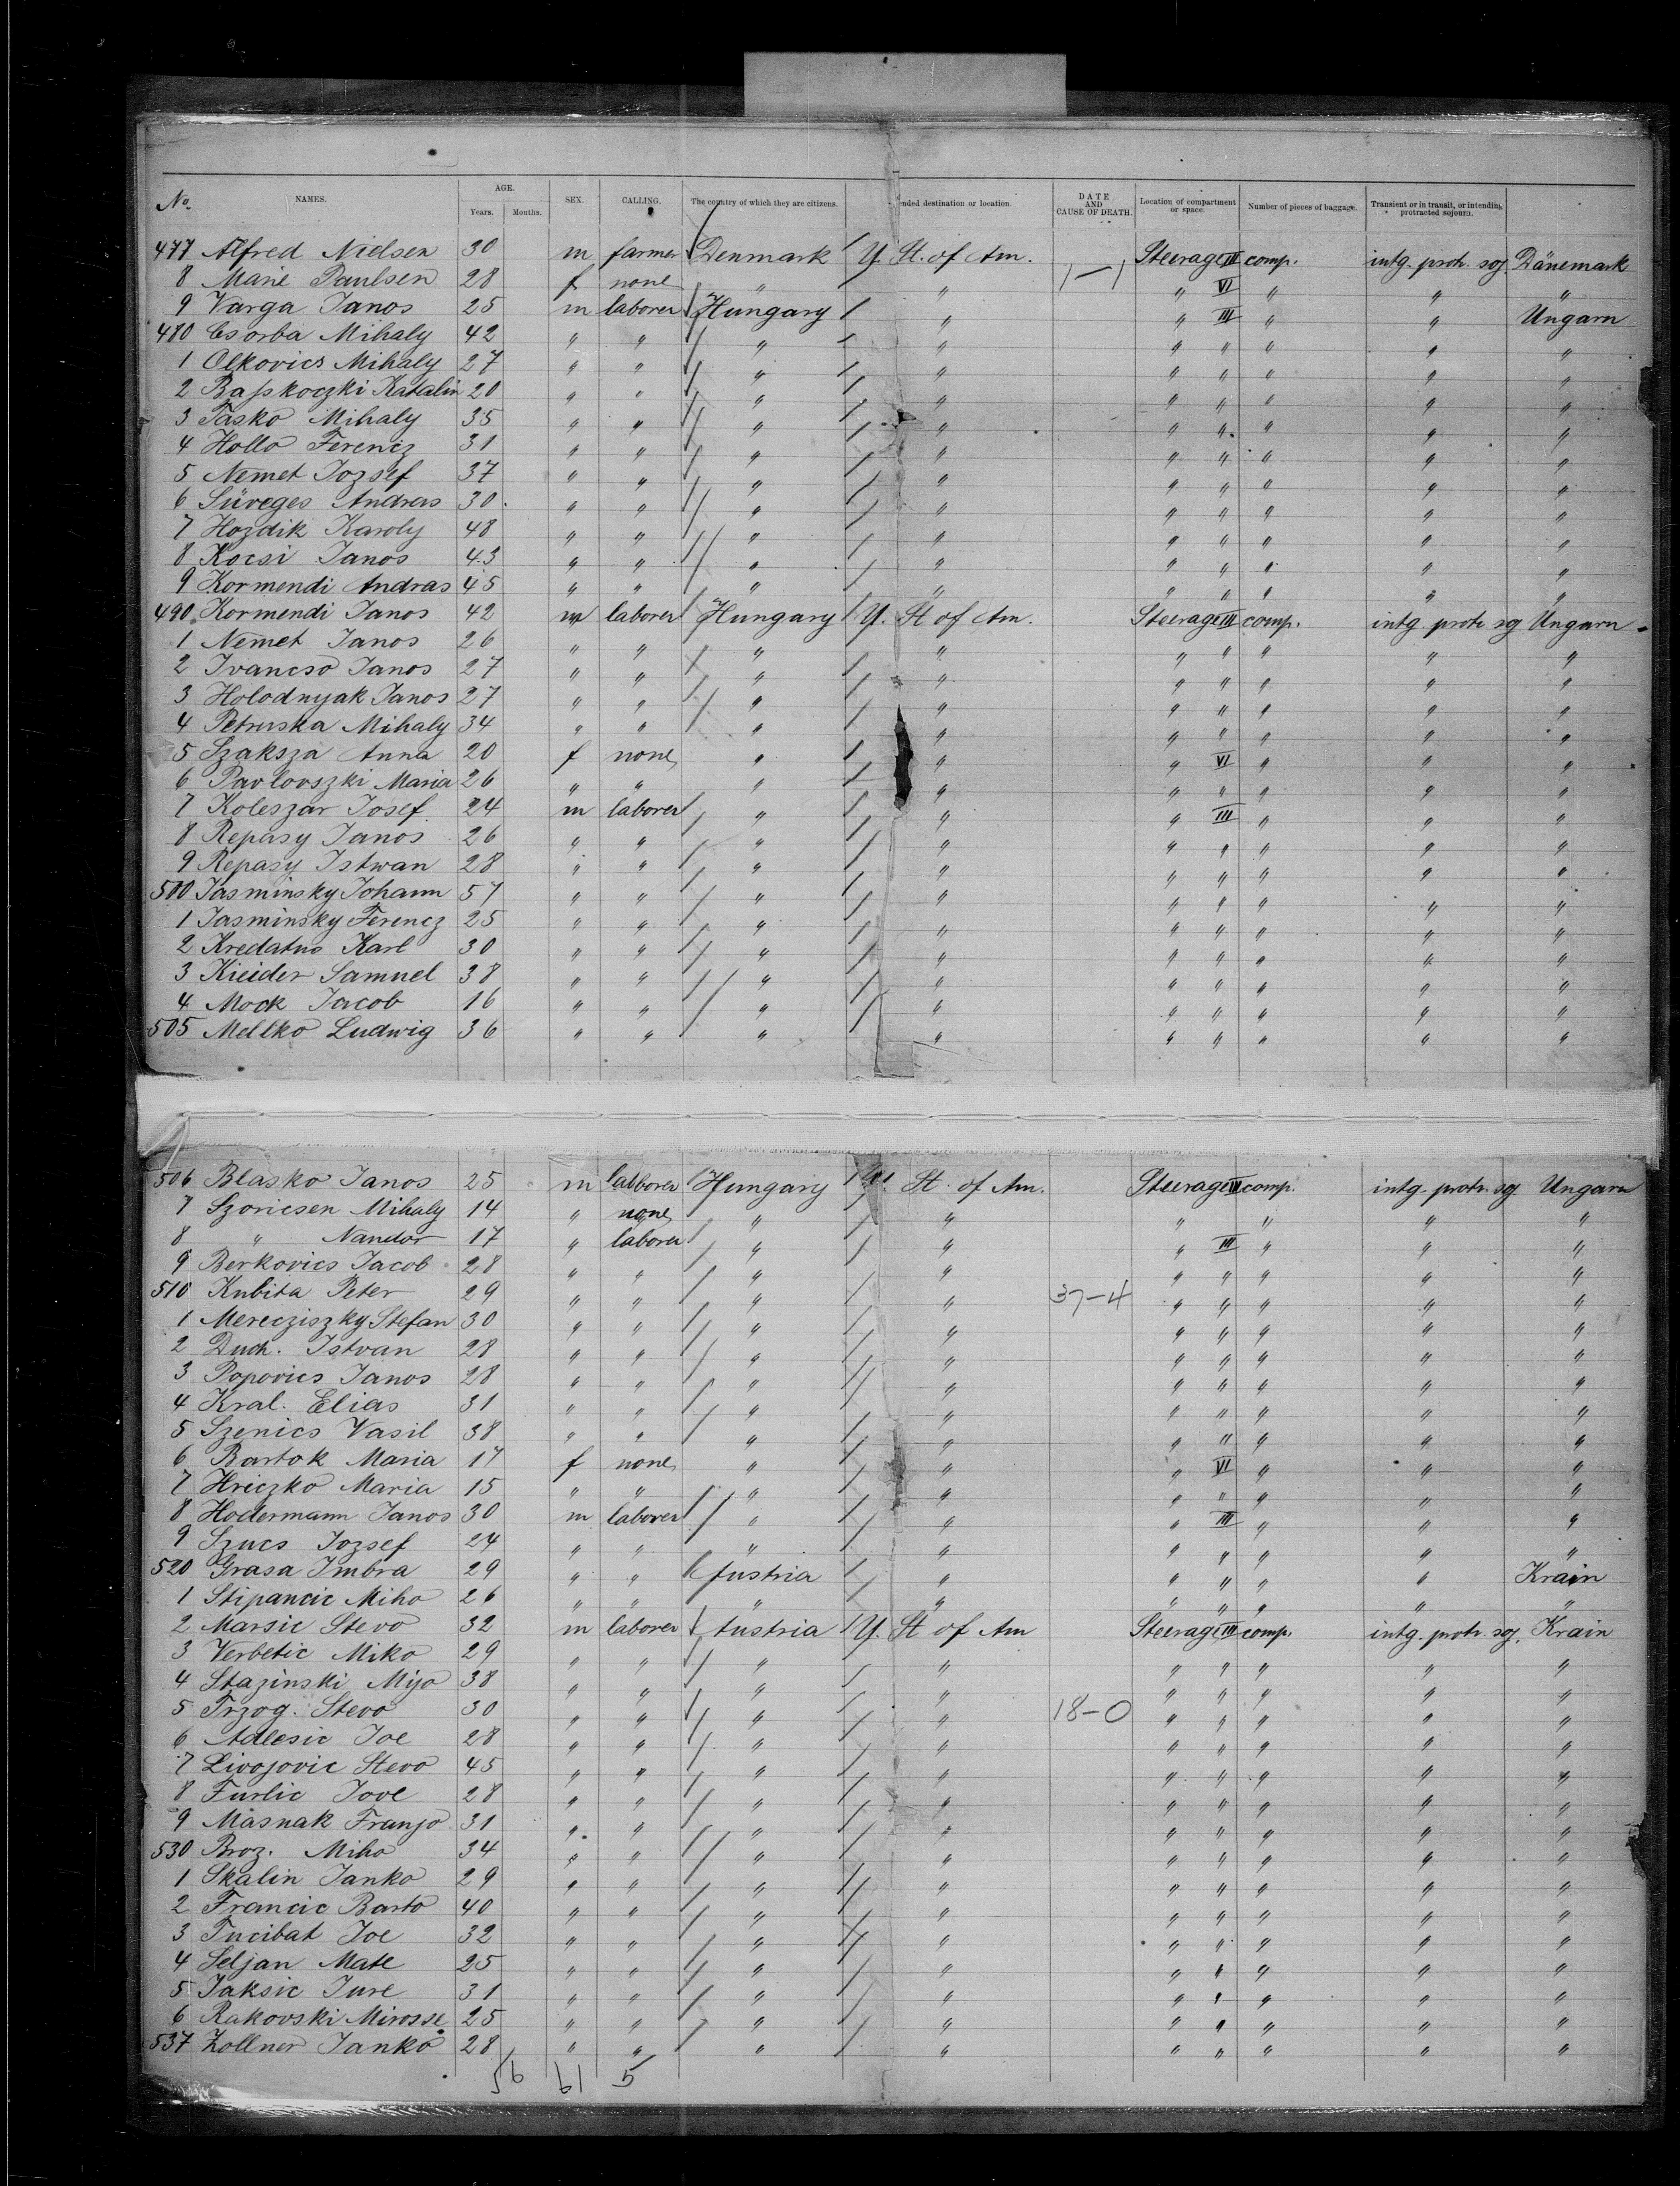 No. NAMES. AGE. Years. Months. SEX. CALLING. The country of which they are citizens. nded destination or location. DATE AND CAUSE OF DEATH. Location of compartment or space. Number of pieces of baggage. Transient or in transit, or intending protracted sojourn.
477 Alfred Nielsen 30 m farmer Denmark U. St. of Am. Steerage III comp. intg. protr. soj Dänemark
8 Marie Paulsen 28 f none " " 1-1 " VI " " "
9 Varga Janos 25 m laborer Hungary " " III " " Ungarn
480 Csorba Mihaly 42 " " " " " " " " "
1 Olkovics Mihaly 27 " " " " " " " " "
2 Baſskoczki Katalin 20 " " " " " " " " "
3 Tasko Mihaly 35 " " " " " " " " "
4 Hollo Ferencz 31 " " " " " " " " "
5 Nemet Jozsef 37 " " " " " " " " "
6 Süveges Andras 30 " " " " " " " " "
7 Hozdik Karoly 48 " " " " " " " " "
8 Kocsi Janos 43 " " " " " " " " "
9 Kormendi Andras 45 " " " " " " " " "
490 Kormendi Janos 42 m laborer Hungary U. St of Am. Steerage III comp. intg protr soj Ungarn
1 Nemet Janos 26 " " " " " " " " "
2 Ivancso Janos 27 " " " " " " " " "
3 Holodnyak Janos 27 " " " " " " " " "
4 Petruska Mihaly 34 " " " " " " " " "
5 Szaksza Anna 20 f none " " " VI " " "
6 Pavlovszki Maria 26 " " " " " " " " "
7 Koleszar Josef 24 m laborer " " " III " " "
8 Repasy Janos 26 " " " " " " " " "
9 Repasy Istwan 28 " " " " " " " " "
500 Jasminsky Johann 57 " " " " " " " " "
1 Jasminsky Ferencz 25 " " " " " " " " "
2 Kredatus Karl 30 " " " " " " " " "
3 Kieider Samuel 38 " " " " " " " " "
4 Mock Jacob 16 " " " " " " " " "
505 Mellko Ludwig 36 " " " " " " " " "
506 Blasko Janos 25 m laborer Hungary U. St. of Am. Steerage comp. intg. protr. soj. Ungarn
7 Szoricsen Mihaly 14 " none " " " " " "
8 " Nandor 17 " laborer " " " III " " "
9 Berkovics Jacob 28 " " " " " " " " "
510 Kubita Peter 29 " " " " 37-4 " " " " "
1 Merecziszky Stefan 30 " " " " " " " " "
2 Duch. Istvan 28 " " " " " " " " "
3 Popovics Janos 28 " " " " " " " " "
4 Kral. Elias 31 " " " " " " " " "
5 Szenics Vasil 38 " " " " " " " " "
6 Bartok Maria 17 f none " " " VI " " "
7 Hriczko Maria 15 " " " " " " " " "
8 Hodermann Janos 30 m laborer " " " III " " "
9 Szucs Jozsef 24 " " " " " " " " "
520 Grasa Imbra 29 " " Austria " " " " " Krain
1 Stipancic Miho 26 " " " " " " " " "
2 Marsic Stevo 32 m laborer Austria U. St of Am Steerage III comp. intg. protr. soj. Krain
3 Verbetic Miko 29 " " " " " " " " "
4 Stazinski Mijo 38 " " " " " " " " "
5 Trzog. Stevo 30 " " " " 18-0 " " " " "
6 Adlesic Joe 28 " " " " " " " " "
7 Livojovic Stevo 45 " " " " " " " " "
8 Furlic Jove 28 " " " " " " " " "
9 Masnak Franjo 31 " " " " " " " " "
530 Broz. Miho 34 " " " " " " " " "
1 Skalin Janko 29 " " " " " " " " "
2 Francic Barto 40 " " " " " " " " "
3 Tucibat Joe 32 " " " " " " " " "
4 Seljan Mate 25 " " " " " " " " "
5 Jaksic Jure 31 " " " " " " " " "
6 Rakovski Mirosse 25 " " " " " " " " "
537 Zollner Janko 28 " " " " " " " " "